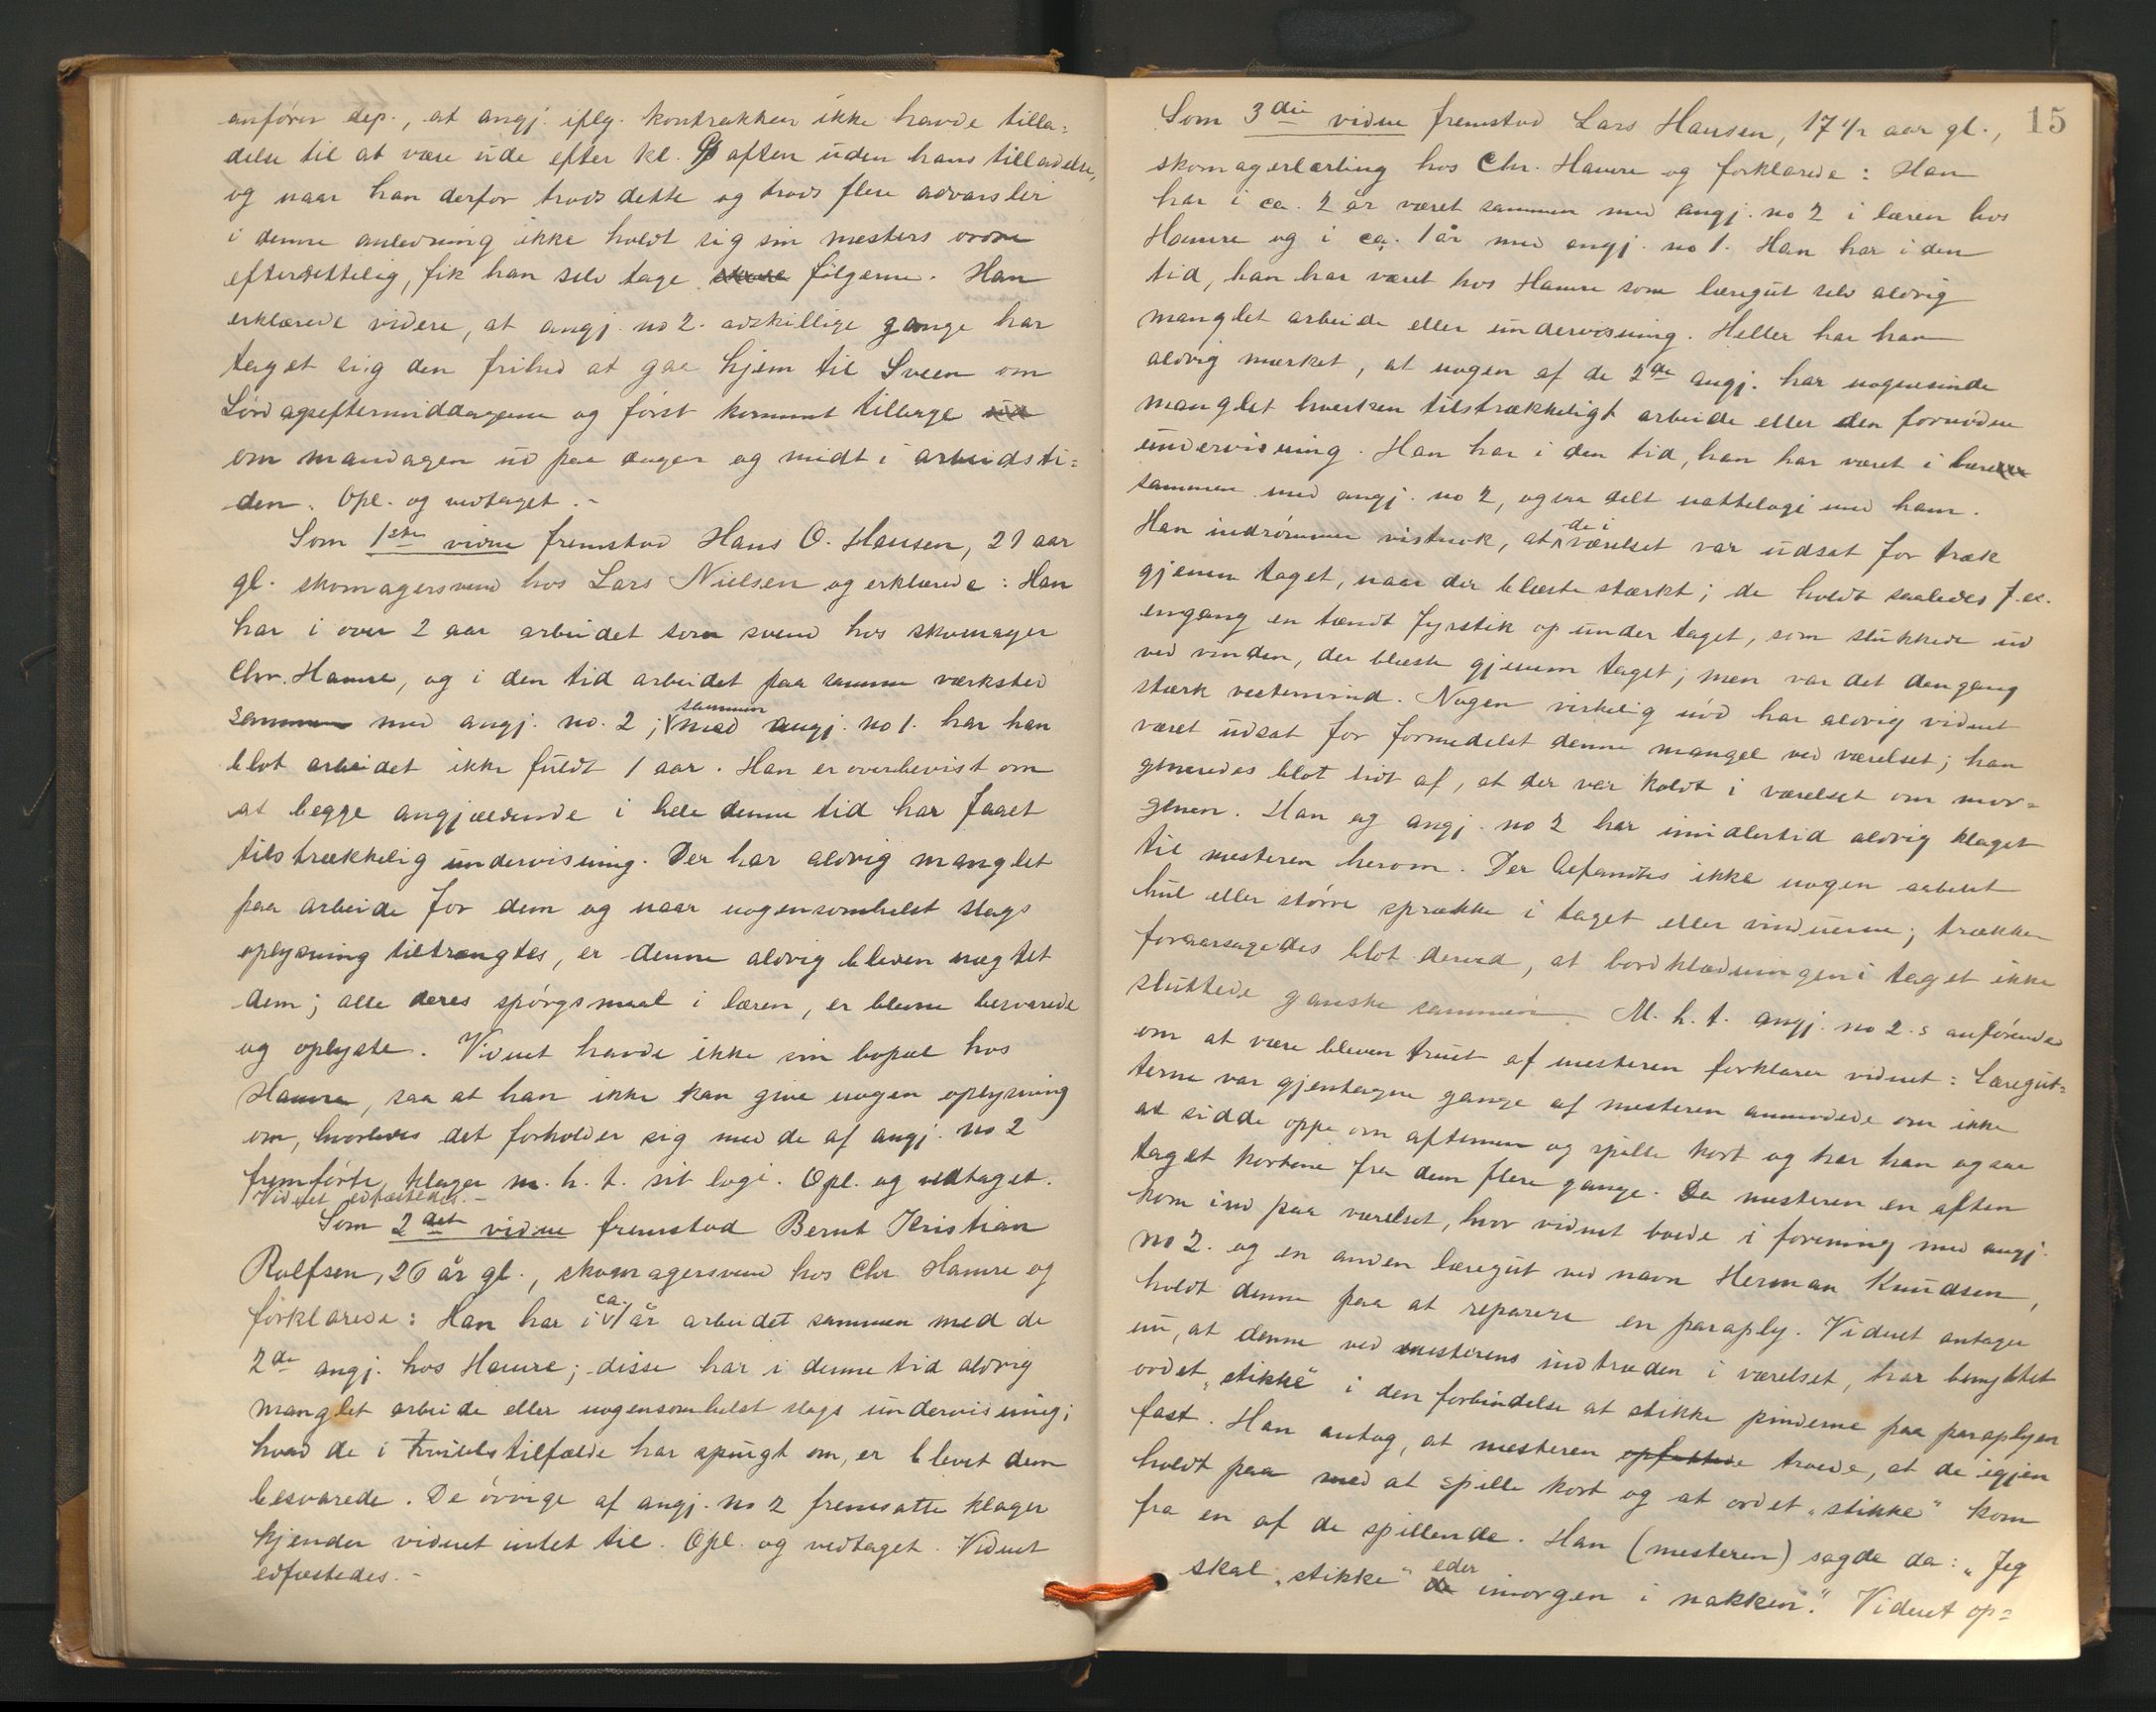 anfører dep., at angj. iflg. kontrakken ikke havde tilla=
delse til at være ude efter kl. 9 aften uden hans tilladelse,
og naar han derfor trods dette og trods flere advarsler
i denne anledning ikke holdt sig sin mesters ordre
efterrettelig, fik han selv tage følgerne. Han
erklærede videre, at angj. no 2. adskillige gange har
taget sig den frihed at gaa hjem til Sveen om
Lørdagseftermiddagene og først kommet tilbage
om mandagen ud paa dagen og midt i arbeidsti=
den. Opl. og vedtaget.-
Som 1ste vidne fremstod Hans O. Hansen, 21 aar
gl. skomagersvend hos Lars Nielsen og erklærede: Han
har i over 2 aar arbeidet som svend hos skomager
Chr. Hamre, og i den tid arbeidet paa samme værksted
sammen med angj. no. 2; sammen med angj. no 1. har han
blot arbeidet ikke fuldt 1 aar. Han er overbevist om
at begge angjældende i hele denne tid har faaet
tilstrækkelig undervisning. Der har aldrig manglet
paa arbeide for dem og naar nogensomhelst slags
oplysning tiltrængtes, er denne aldrig bleven nægtet
dem; alle deres spørgsmaal i læren, er blevne besvarede
og oplyste. Vidnet havde ikke sin bopæl hos
Hamre, saa at han ikke kan give nogen oplysning
om, hvorledes det forholder sig med de af angj. no 2
fremførte klager m. h. t. sit logi. Opl. og vedtaget.
Vidnet edfæstedes.-
Som 2det vidne fremstod Bernt Kristian
Rolfsen, 26 år gl., skomagersvend hos Chr. Hamre og
forklarede: Han har i ca. 1 år arbeidet sammen med de
2de angj. hos Hamre; disse har i denne tid aldrig
manglet arbeide eller nogensomhelst slags undervisning;
hvad de i tvivlstilfælde har spurgt om, er blevet dem
besvarede. De øvrige af angj. no 2 fremsatte klager
kjender vidnet intet til. Opl. og vedtaget. Vidnet
edfæstedes.-
15
Som 3die vidne fremstod Lars Hansen, 17 1/2 aar gl.,
skomagerlærling hos Chr. Hamre og forklarede: Han
har i ca. 2 år været sammen med angj. no 2 i læren hos
Hamre og i ca. 1 år med angj. no 1. Han har i den
tid, han har været hos Hamre som læregut selv aldrig
manglet arbeide eller undervisning. Heller har han
aldrig mærket, at nogen af de 2de angj. har nogensinde
manglet hverken tilstrækkeligt arbeide eller den fornødne
undervisning. Han har i den tid, han har været i lære
sammen med angj. no 2, ogsaa delt nattelogi med ham.
Han indrømmer vistnok, at de i værelset var udsat for træk
gjennem taget, naar der blæste stærkt; de holdt saaledes f.ex.
engang en tændt fyrstik op under taget, som slukkede ud
ved vinden, der blæste gjennem taget; men var det dengang
stærk vestenvind. Nogen virkelig nød har aldrig vidnet
været udsat for formedelst denne mangel ved værelset; han
generedes blot lidt af, at der var koldt i værelset om mor=
genen. Han og angj. no 2 har imidlertid aldrig klaget
til mesteren herom. Der befandtes ikke nogen aabent
hul eller større sprække i taget eller vinduerne; trækken
foraarsagedes blot derved, at bordklædningen i taget ikke
sluttede ganske sammen. M. h. t. angj. no 2.s anførende
om at være bleven truet af mesteren forklarer vidnet: Læregut=
terne var gjentagne gange af mesteren anmodede om ikke
at sidde oppe om aftenen og spille kort og har han ogsaa
taget kortene fra dem flere gange. Da mesteren en aften
kom ind paa værelset, hvor vidnet boede i forening med angj.
no 2. og en anden læregut ved navn Herman Knudsen,
holdt denne paa at reparere en paraply. Vidnet antager
nu, at denne ved mesterens indtræden i værelset, har benyttet
ordet „stikke" i den forbindelse at stikke pinderne paa paraplyen
fast. Han antog, at mesteren opfattede troede, at de igjen
holdt paa med at spille kort og at ordet „stikke" kom
fra en af de spillende. Han (mesteren) sagde da: „Jeg
skal „stikke" eder imorgen i nakken." Vidnet op=